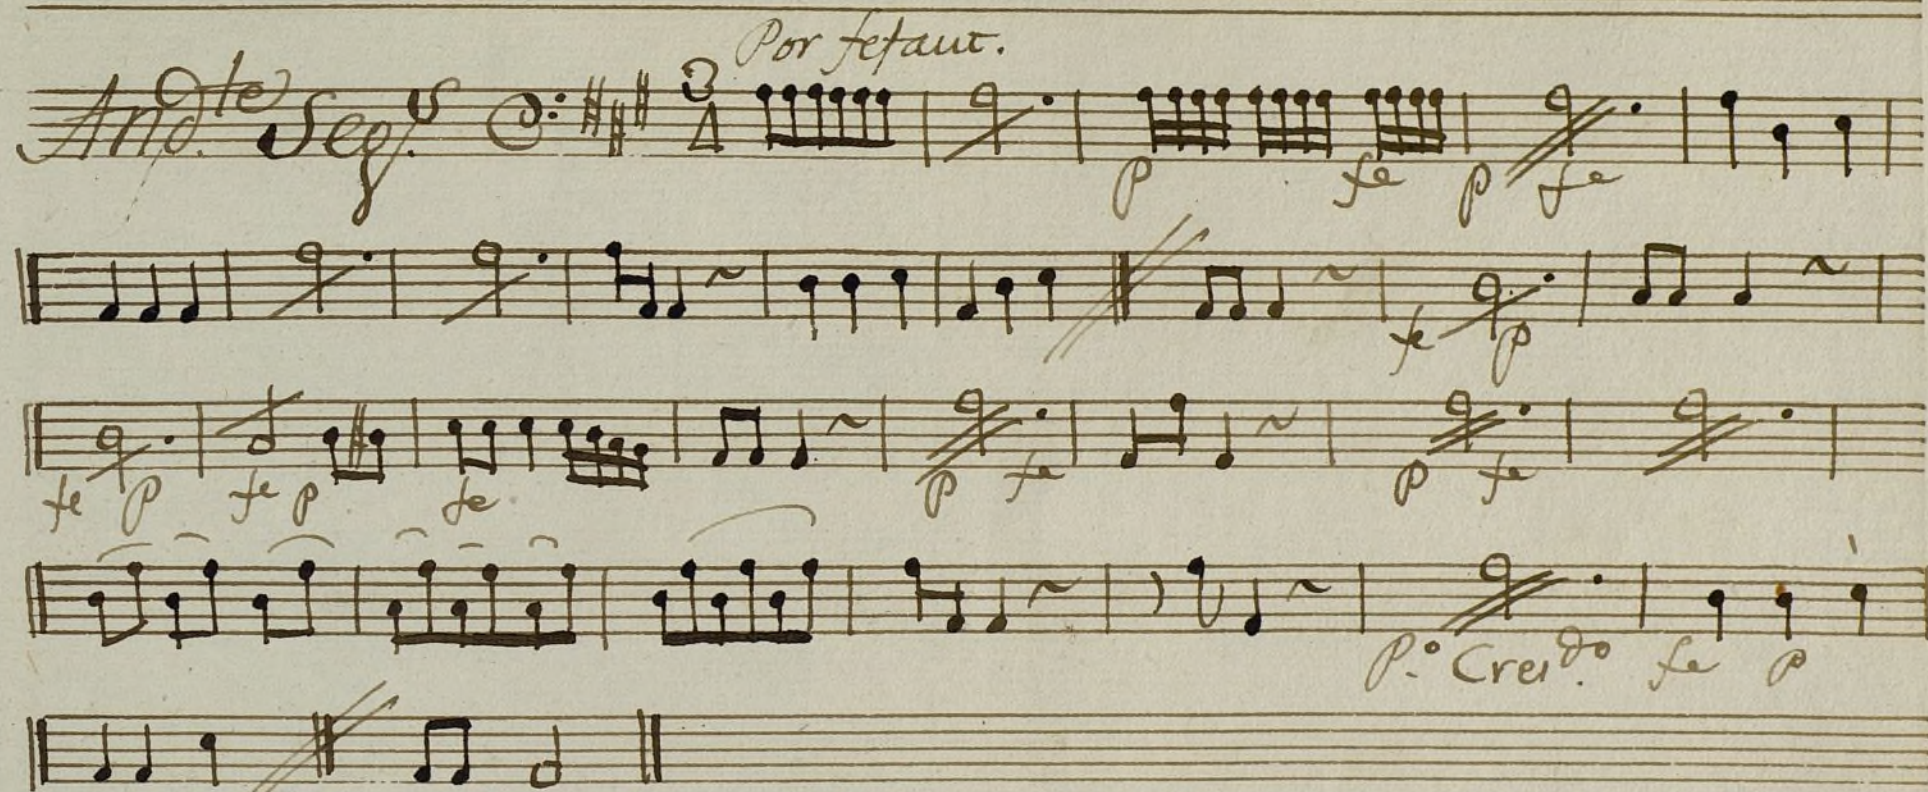 Por fefaut.
And.te Seg.s 3 4
P fe P fe
fe P
fe P fe P fe P fe P fe
P.o Cres.do fe P